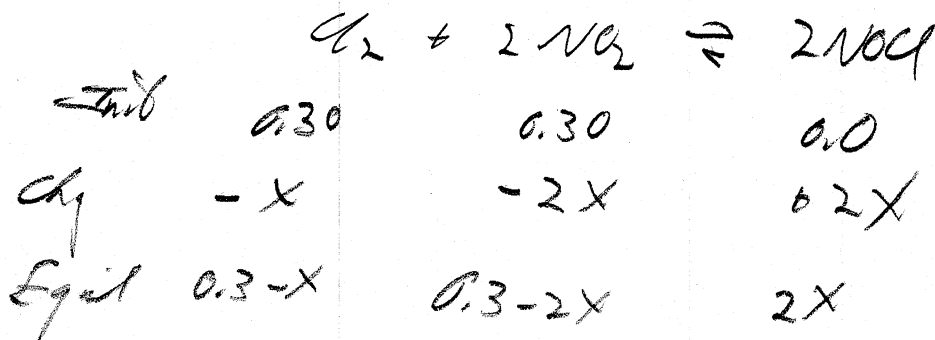 Cl₂ + 2 NO₂ ⇌ 2NOCl
Init 0.30 0.30 0.0
Chg - X - 2X + 2X
Equil 0.3-X 0.3-2X 2X